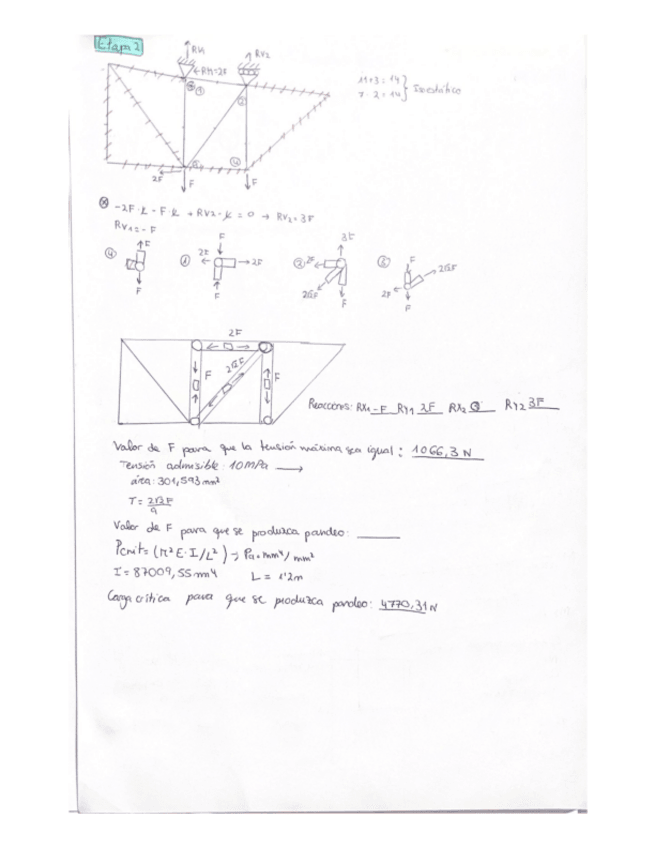 Etapa 2
RV1
RV2
←RH=2F
11+3=14
7·2=14 } Isostático
2F
F
F
-2F·L - F·L + RV2·L = 0 → RV2=3F
RV1=-F
F
F
F
2F
2F
F
3F
2F
2√2F
F
F
2√2F
2F
F
2F
F
2√2F
F
Reacciones: Rx1 -F Ry1 2F Rx2 0 Ry2 3F
Valor de F para que la tensión máxima sea igual: 1066,3 N
Tensión admisible: 10MPa →
área: 301,593 mm²
Valor de F para que se produzca pandeo:
Pcrit= (π²E·I/L²) → Pa·mm⁴/mm²
I = 87009,55 mm⁴ L = 1'2m
Carga crítica para que se produzca pandeo: 4770,31N